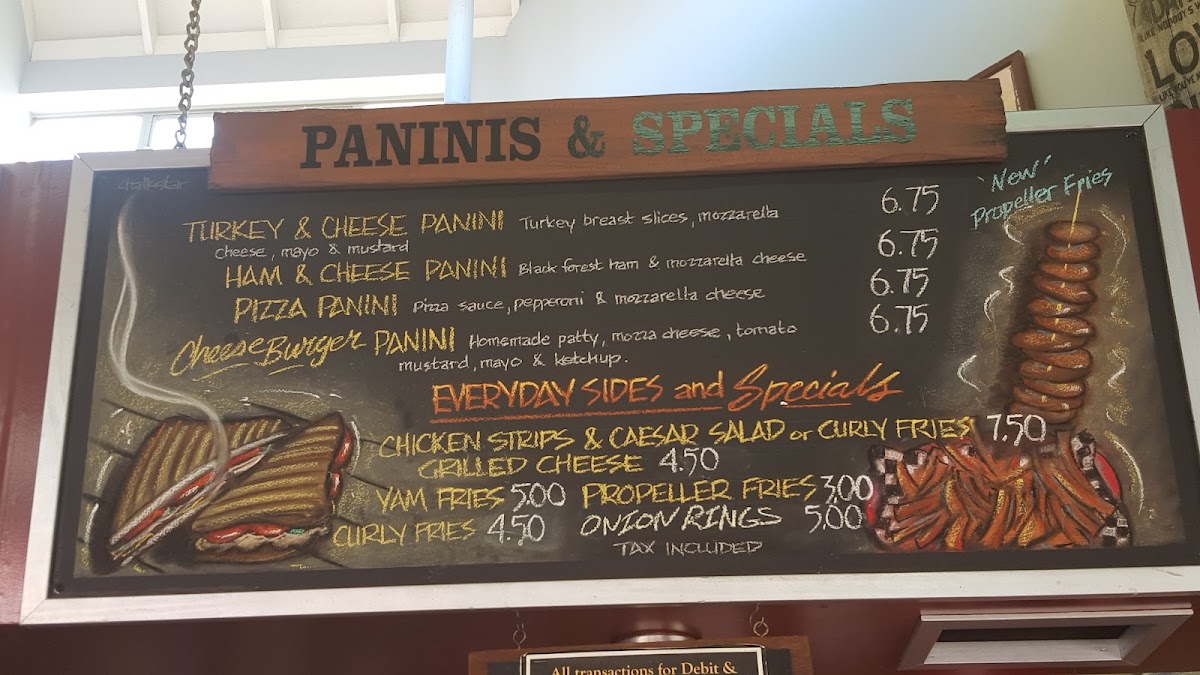 PANINIS & SPECIALS
chalkstar
"New"
Propeller Fries
TURKEY & CHEESE PANINI Turkey breast slices, mozzarella 6.75
cheese, mayo & mustard
HAM & CHEESE PANINI Black forest ham & mozzarella cheese 6.75
PIZZA PANINI Pizza sauce, pepperoni & mozzarella cheese 6.75
Cheese Burger PANINI Homemade patty, mozza cheese, tomato 6.75
mustard, mayo & ketchup.
EVERYDAY SIDES and Specials
CHICKEN STRIPS & CAESAR SALAD or CURLY FRIES 7.50
GRILLED CHEESE 4.50
YAM FRIES 5.00 PROPELLER FRIES 3.00
CURLY FRIES 4.50 ONION RINGS 5.00
TAX INCLUDED
All transactions for Debit &